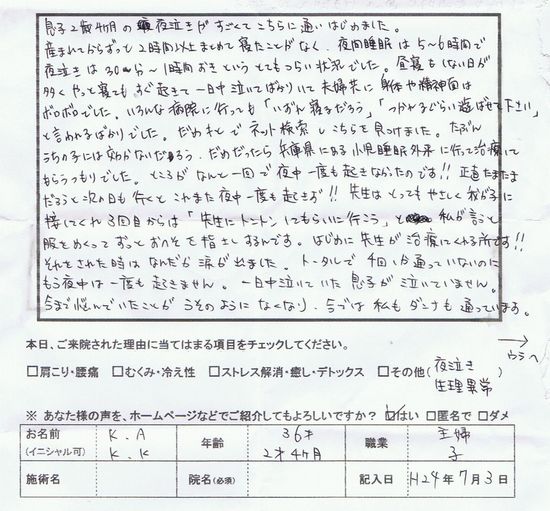 息子2歳4ヶ月の夜泣きがすごくてこちらに通いはじめました。
産まれてからずっと2時間以上まとめて寝たことがなく、夜間睡眠は5〜6時間で
夜泣きは30分〜1時間おきというとてもつらい状況でした。昼寝もしない日が
多くやっと寝てもすぐ起きて一日中泣いてばかりいて夫婦共に身体や精神面は
ボロボロでした。いろんな病院に行っても「いずれ寝るだろう」「つかれるぐらい遊ばせて下さい」
と言われるばかりでした。だめもとでネット検索しこちらを見つけました。たぶん
うちの子には効かないだろう、だめだったら兵庫県にある小児睡眠外来に行って治療して
もらうつもりでした。ところがなんと一回で夜中一度も起きなかったのです!!正直たまたま
だろうと次の日も行くとこれまた夜中一度も起きず!!先生はとってもやさしく我が子に
接してくれ3回目からは「先生にトントンしてもらいに行こう」と私が言うと
服をめくってずっとおへそを指さしするんです。はじめに先生が治療してくれる所です!!
それをされた時はなんだか涙が出ました。トータルで4回しか通っていないのに
もう夜中は一度も起きません。一日中泣いていた息子が泣いていません。
今まで悩んでいたことがうそのようになくなり、今では私もダンナも通っています。
→
ウラへ
本日、ご来院された理由に当てはまる項目をチェックしてください。
□肩こり・腰痛 □むくみ・冷え性 □ストレス解消・癒し・デトックス □その他(夜泣き 生理異常)
※ あなた様の声を、ホームページなどでご紹介してもよろしいですか? ☑はい □匿名で □ダメ
お名前 (イニシャル可) K.A K.K 年齢 36才 2才4ヶ月 職業 主婦 子
施術名 院名(必須) 記入日 H24年7月3日